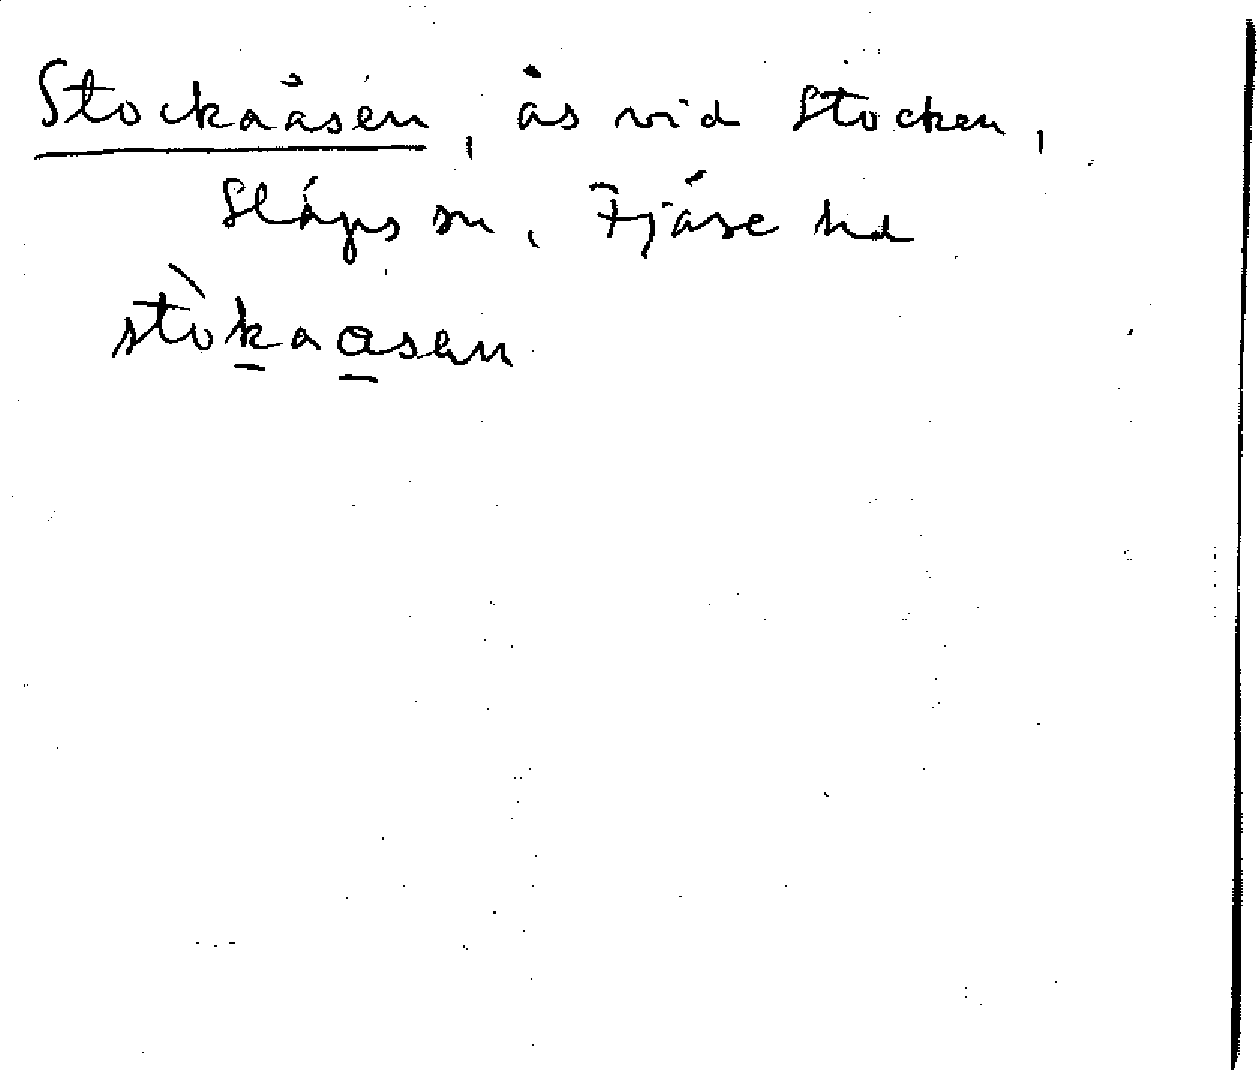 Stockaåsen, ås vid Stocken,
Släps sn, Fjäre hd
stòkaåsen